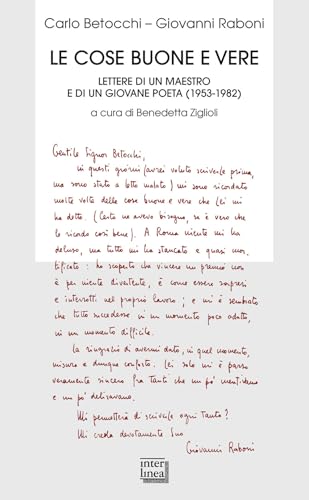 Carlo Betocchi – Giovanni Raboni
LE COSE BUONE E VERE
LETTERE DI UN MAESTRO
E DI UN GIOVANE POETA (1953-1982)
a cura di Benedetta Ziglioli
Gentile Signor Betocchi,
in questi giorni (avrei voluto scriverle prima,
ma sono stato a letto malato) mi sono ricordato
molte volte delle cose buone e vere che Lei mi
ha detto. (Certo ne avevo bisogno, se è vero che
le ricordo così bene). A Roma niente mi ha
deluso, ma tutto mi ha stancato e quasi mor
tificato: ho scoperto che vincere un premio non
è per niente divertente, è come essere sorpresi
e interrotti nel proprio lavoro; e mi è sembrato
che tutto succedesse in un momento poco adatto,
in un momento difficile.
La ringrazio di avermi dato, in quel momento,
misura e dunque conforto. Lei solo mi è parso
veramente sincero fra tanti che un po' mentivano
e un po' deliravano.
Mi permetterà di scriverle ogni tanto?
Mi creda devotamente Suo
Giovanni Raboni
inter
linea